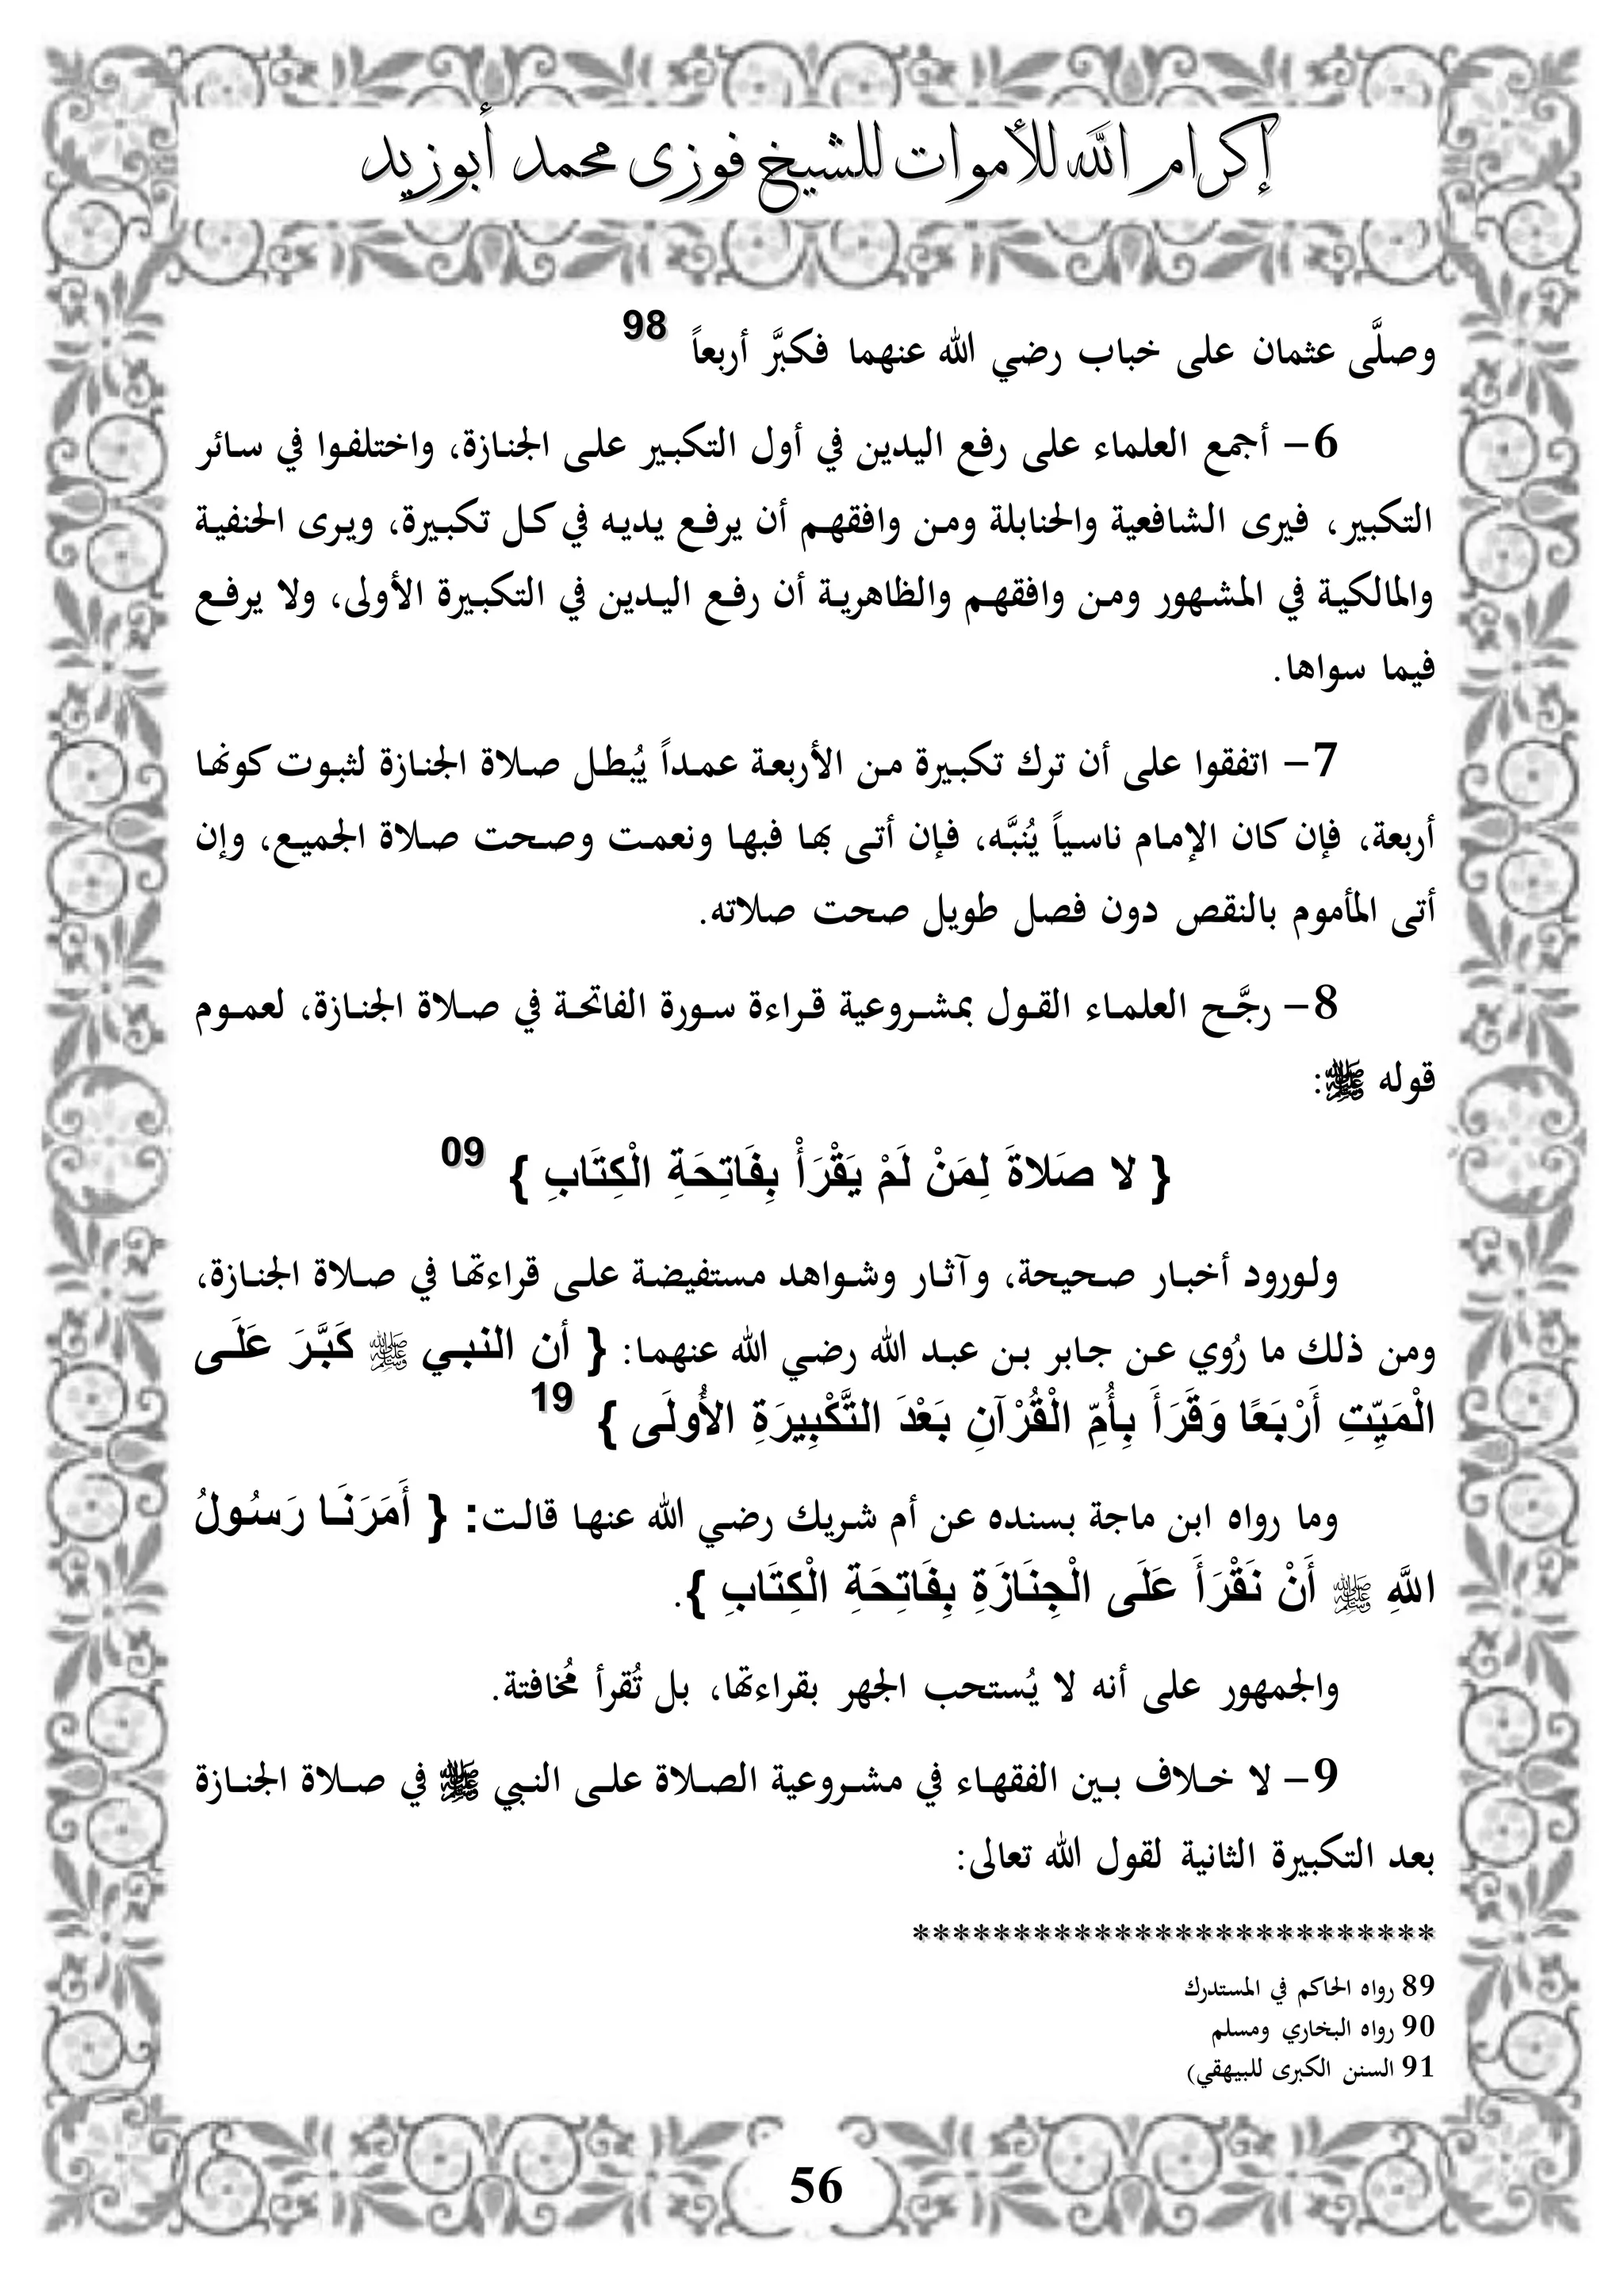 إكرام الله للأموات للشيخ فوزى محمد أبوزيد
وصلَّى عثمان على خباب رضي الله عنهما فكبَّر أربعاً 98
6- أجمع العلماء على رفع اليدين في أول التكبير على الجنازة، واختلفوا في سائر
التكبير، فيرى الشافعية والحنابلة ومن وافقهم أن يرفع يديه في كل تكبيرة، ويرى الحنفية
والمالكية في المشهور ومن وافقهم والظاهرية أن رفع اليدين في التكبيرة الأولى، ولا يرفع
فيما سواها.
7- اتفقوا على أن ترك تكبيرة من الأربعة عمداً يُبطل صلاة الجنازة لثبوت كونها
أربعة، فإن كان الإمام ناسياً يُنبَّه، فإن أتى بها فبها ونعمت وصحت صلاة الجميع، وإن
أتى المأموم بالنقص دون فصل طويل صحت صلاته.
8- رجَّح العلماء القول بمشروعية قراءة سورة الفاتحة في صلاة الجنازة، لعموم
قوله ﷺ:
{ لا صَلاةَ لِمَنْ لَمْ يَقْرَأْ بِفَاتِحَةِ الْكِتَابِ } 09
ولورود أخبار صحيحة، وآثار وشواهد مستفيضة على قراءتها في صلاة الجنازة،
ومن ذلك ما رُوي عن جابر بن عبد الله رضي الله عنهما: { أن النبي ﷺ كَبَّرَ عَلَى
الْمَيِّتِ أَرْبَعًا وَقَرَأَ بِأُمِّ الْقُرْآنِ بَعْدَ التَّكْبِيرَةِ الأُولَى } 19
وما رواه ابن ماجة بسنده عن أم شريك رضي الله عنها قالت: { أَمَرَنَا رَسُولُ
اللَّهِ ﷺ أَنْ نَقْرَأَ عَلَى الْجِنَازَةِ بِفَاتِحَةِ الْكِتَابِ }.
والجمهور على أنه لا يُستحب الجهر بقراءتها، بل تُقرأ مُخافتة.
9- لا خلاف بين الفقهاء في مشروعية الصلاة على النبي ﷺ في صلاة الجنازة
بعد التكبيرة الثانية لقول الله تعالى:
**************************
89 رواه الحاكم في المستدرك
90 رواه البخاري ومسلم
91 السنن الكبرى للبيهقي)
56